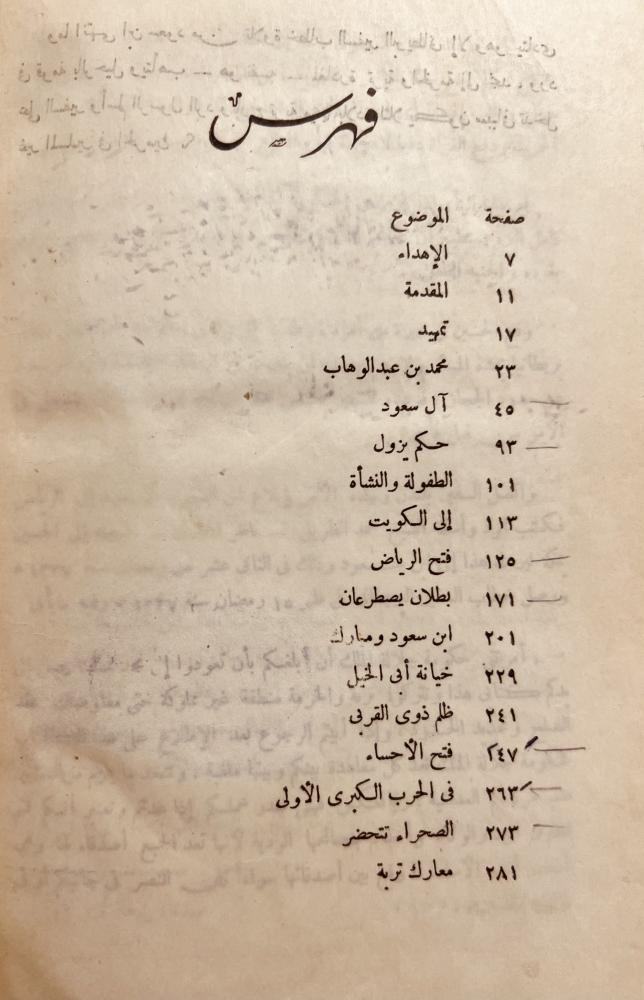 فهرس
صفحة الموضوع
٧ الإهداء
١١ المقدمة
١٧ تمهيد
٢٣ محمد بن عبدالوهاب
٤٥ آل سعود
٩٣ حكم يزول
١٠١ الطفولة والنشأة
١١٣ إلى الكويت
١٢٥ فتح الرياض
١٧١ بطلان يصطرعان
٢٠١ ابن سعود ومبارك
٢٢٩ خيانة أبى الخيل
٢٤١ ظلم ذوى القربى
٢٤٧ فتح الأحساء
٢٦٣ فى الحرب الكبرى الأولى
٢٧٣ الصحراء تتحضر
٢٨١ معارك تربة